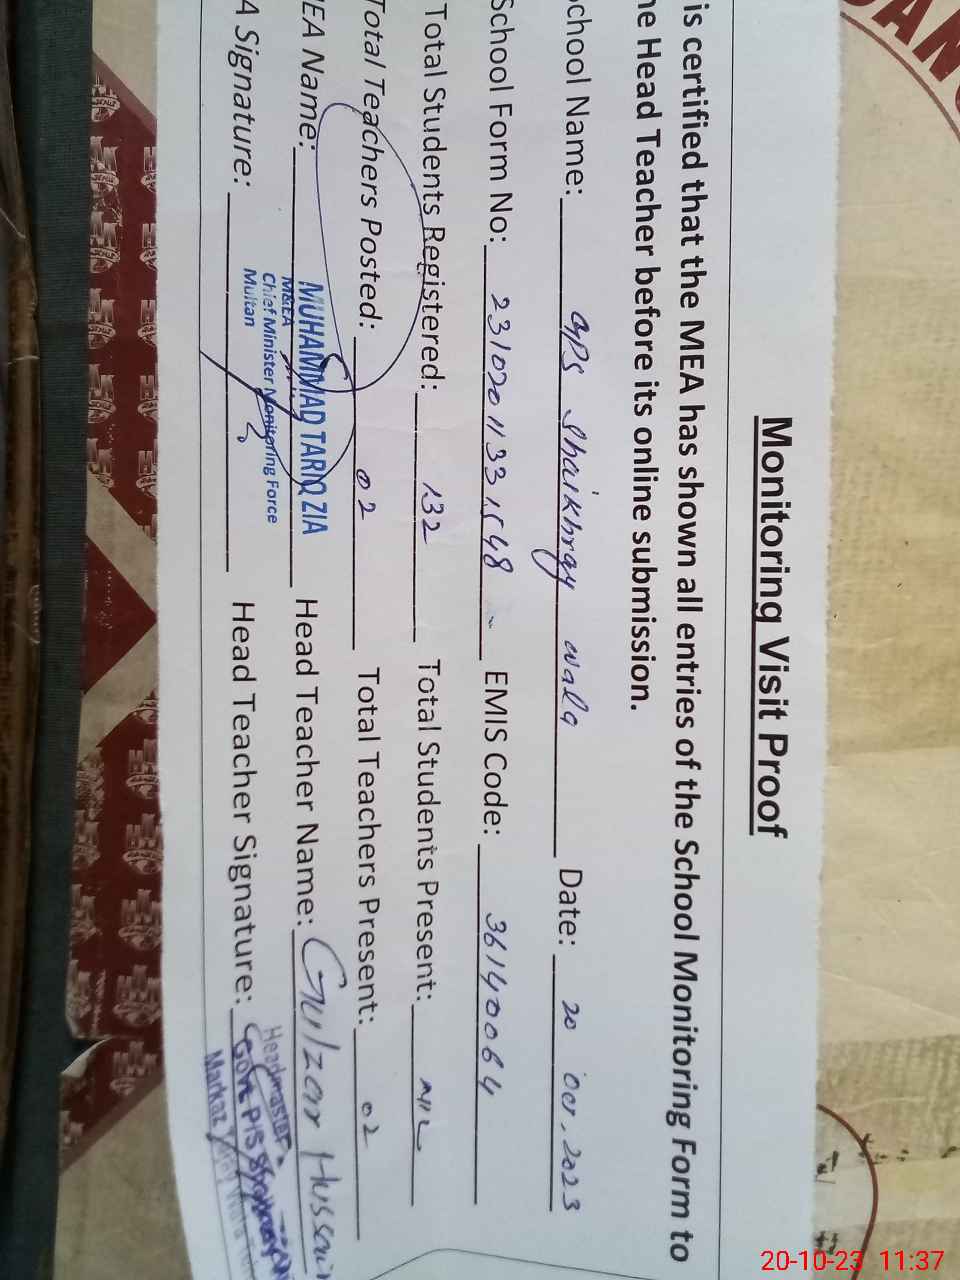 Monitoring Visit Proof
is certified that the MEA has shown all entries of the School Monitoring Form to
he Head Teacher before its online submission.
School Name: GPS Shaikhray wala Date: 20 Oct, 2023
School Form No: EMIS Code: 36140064
Total Students Registered: 132 Total Students Present: NIL
Total Teachers Posted: 02 Total Teachers Present: 02
MEA Name: MUHAMMAD TARIQ ZIA Head Teacher Name: Gulzar Hussain
M&EA
Chief Minister Monitoring Force
Multan
A Signature: Head Teacher Signature:
Headmaster
Govt. P/S
Markaz
20-10-23 11:37